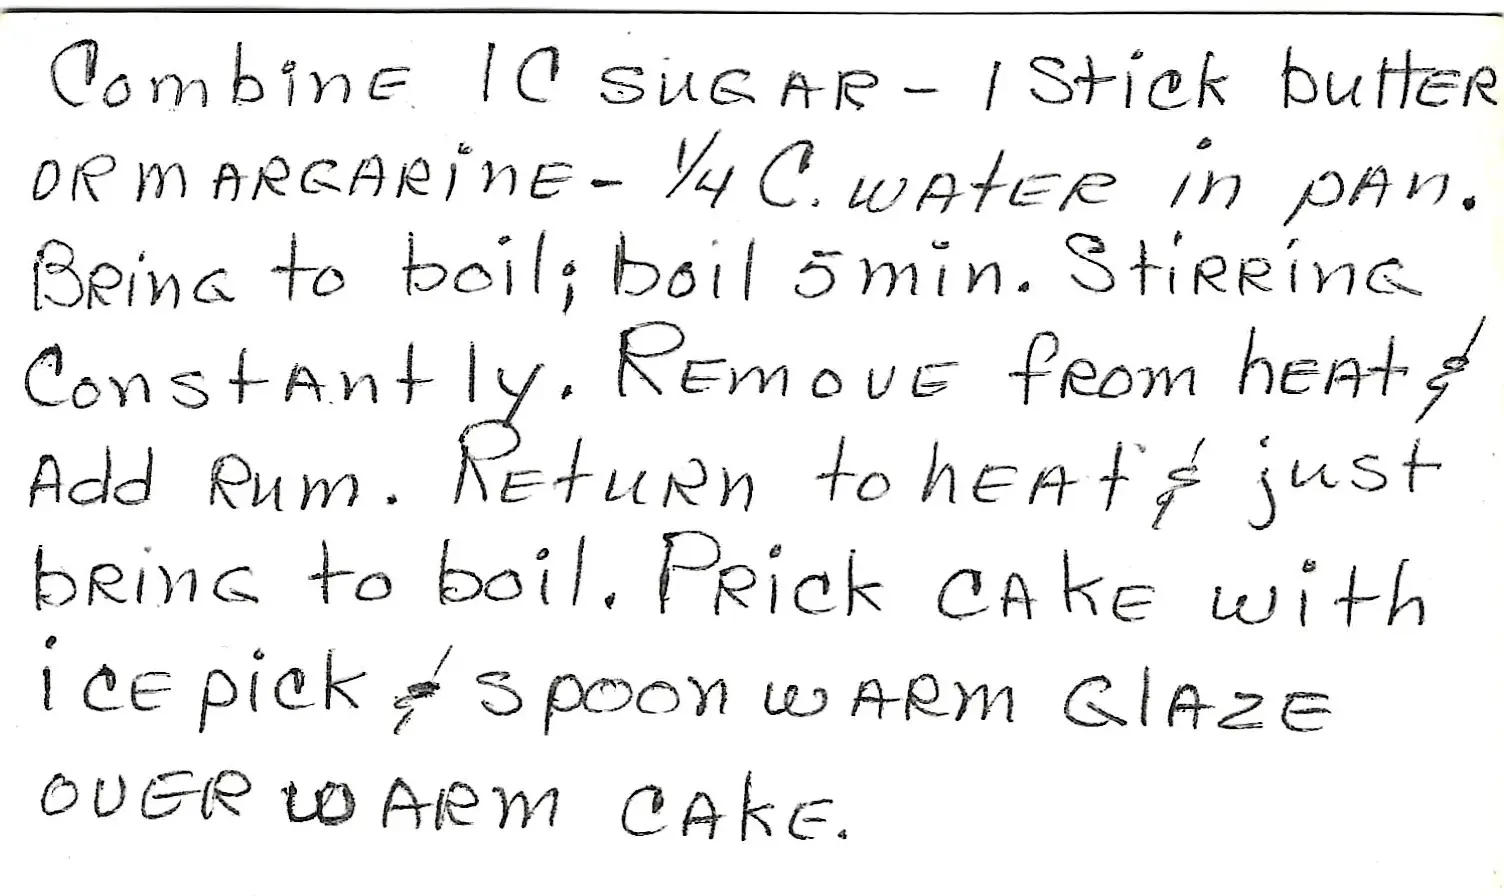 Combine 1 C sugar - 1 Stick butter
or margarine - 1/4 C. water in pan.
Bring to boil; boil 5 min. Stirring
Constantly. Remove from heat &
Add Rum. Return to heat & just
bring to boil. Prick cake with
ice pick & spoon warm glaze
over warm cake.